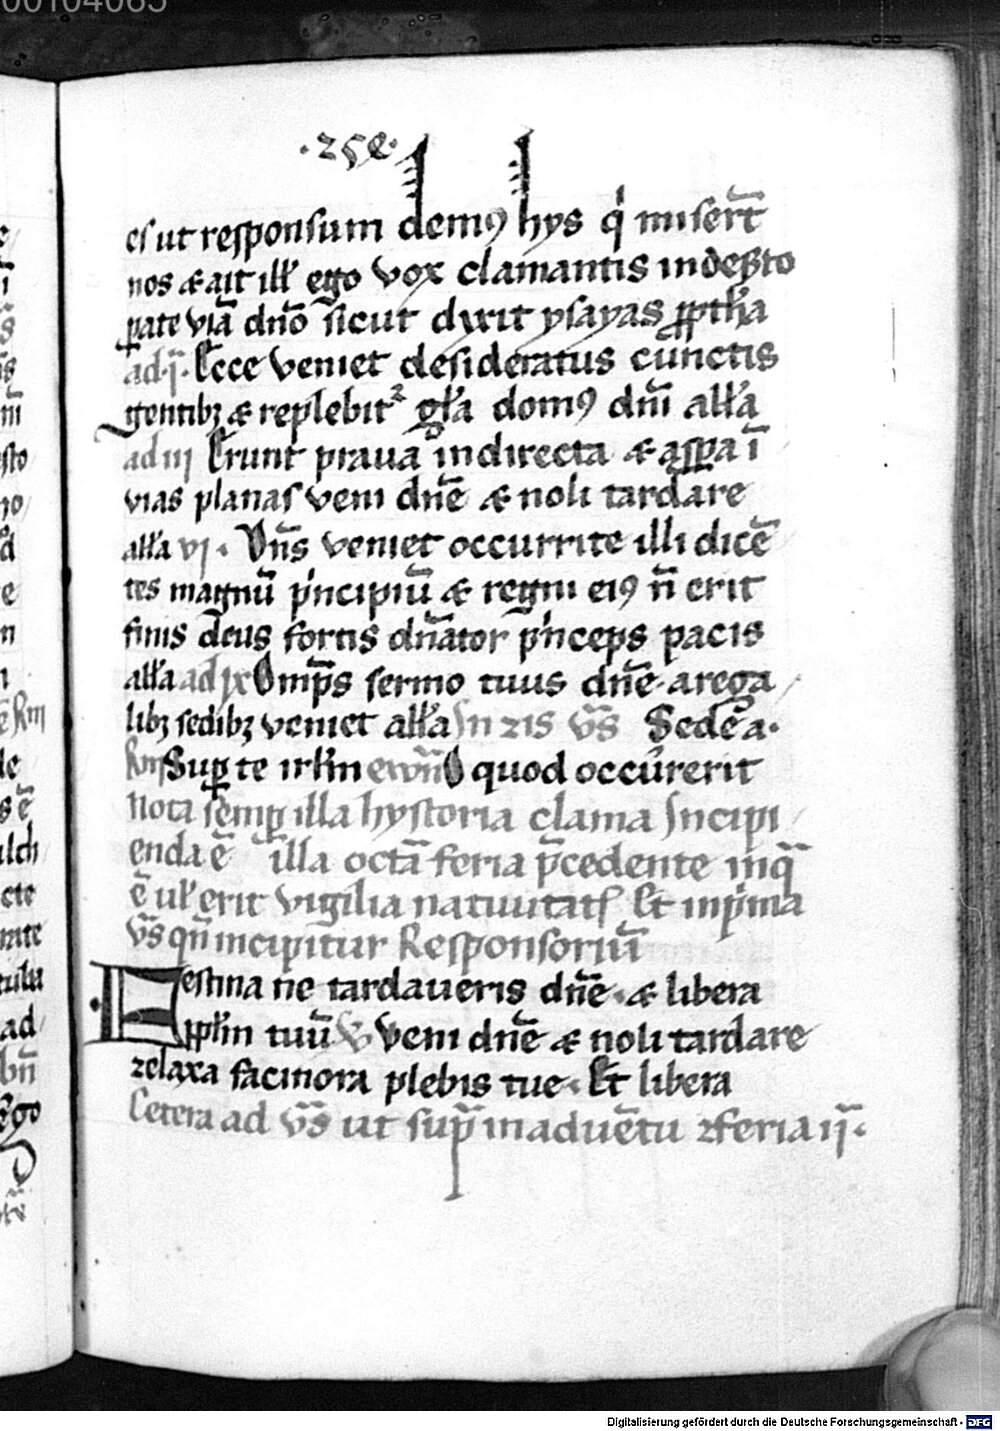 00104065
·252·
es ut responsum demꝰ hys q̇ miser̄t
nos & ait ill̵ ego vox clamantis in deẜto
ꝑate viā dn̄o sicut dixit ysayas ꝓpth̵a
ad·j̄· Ecce veniet desideratus cūnctis
gentibꝫ & replebit᷑ gl̵a domꝰ dn̄i all̵a
ad iij Erunt praua in directa & asꝑa ī
vias planas veni dn̄e & noli tardare
all̵a vj · Dn̄s veniet occurrite illi dicē
tes magnū pͥncipiū & regni eiꝰ n̄ erit
finis deus fortis dn̄ator pͥnceps pacis
all̵a ad ix Omp̄s sermo tuus dn̄e a rega
libꝫ sedibꝫ veniet all̵a In v̄s Sede a·
Sup te irl̵m O quod occurerit
Nota semꝑ illa hystoria clama Incipi
enda ē illa octā feria p̄cedente inq̄
ē ul̵ erit vigilia natiuitatꝭ Et in pͥma
v̄s qn̄ incipitur Responsoriū
Festina ne tardaveris dn̄e · & libera
ppl̵m tuū V Veni dn̄e & noli tardare
relaxa facinora plebis tue · Et libera
Cetera ad v̄s ut sup̄ in aduētu feria ij·
Digitalisierung gefördert durch die Deutsche Forschungsgemeinschaft - DFG